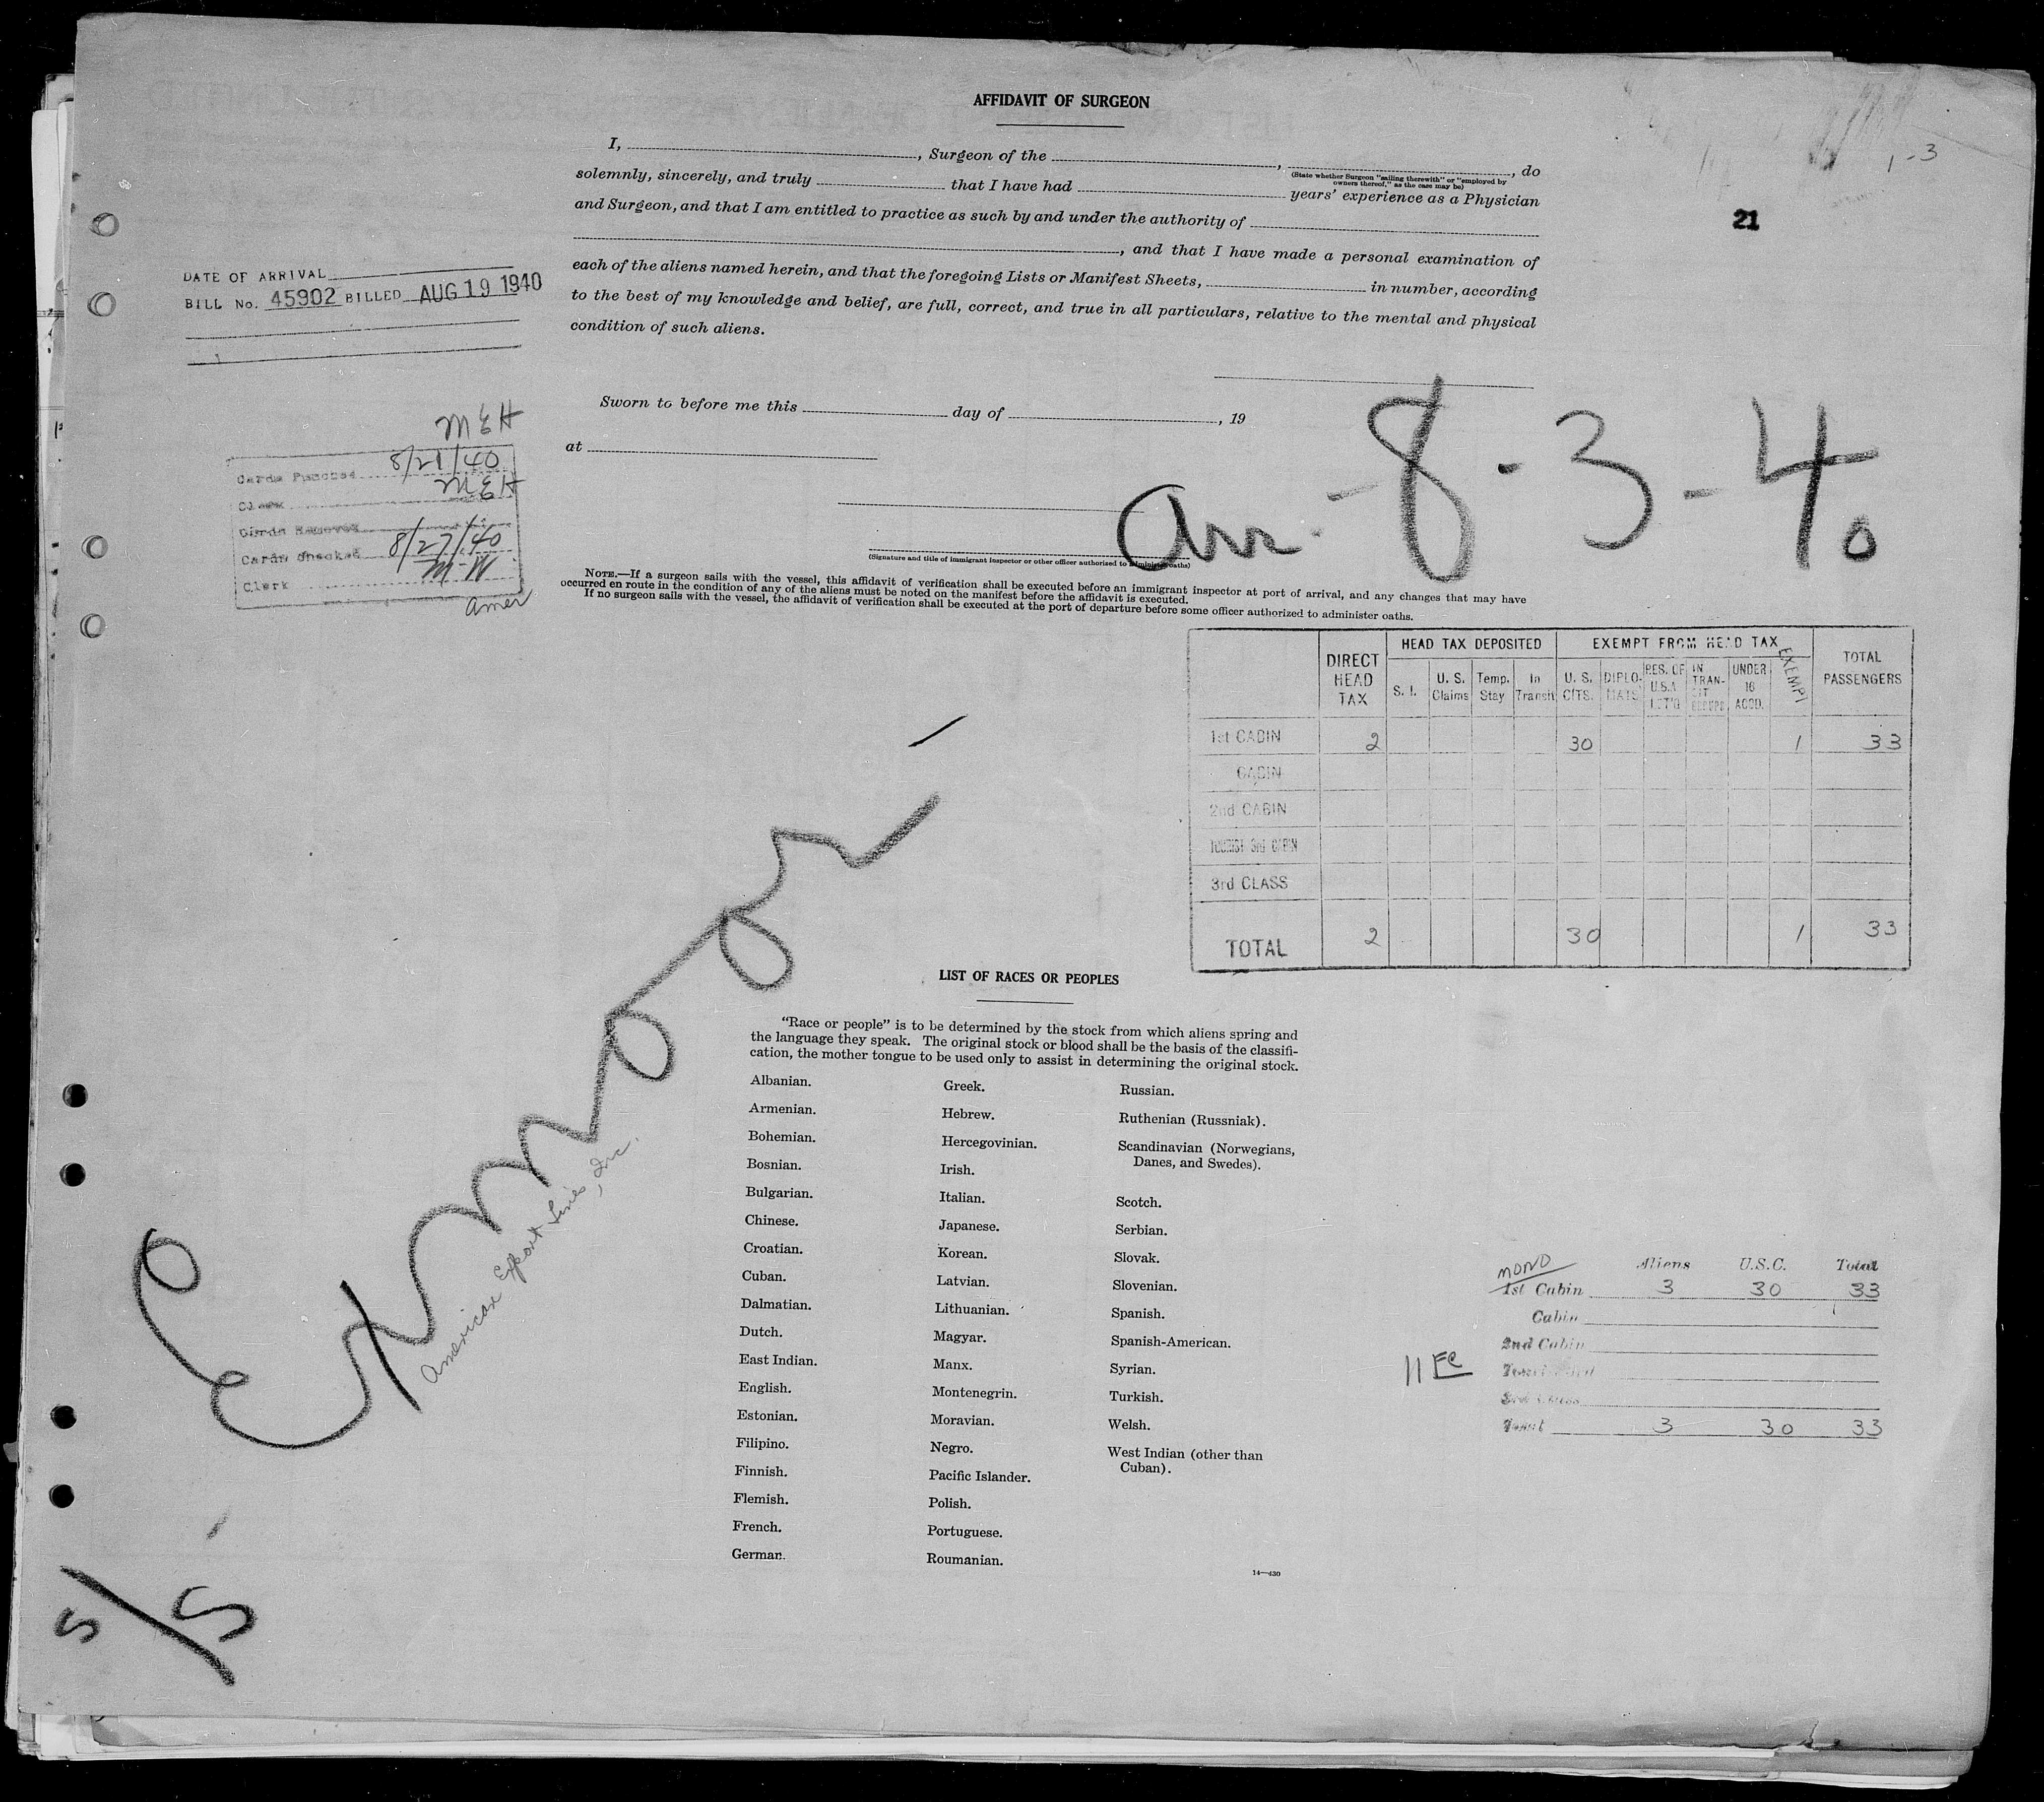 AFFIDAVIT OF SURGEON
I, , Surgeon of the , , do
(State whether Surgeon "sailing therewith" or "employed by
owners thereof," as the case may be)
solemnly, sincerely, and truly that I have had years' experience as a Physician
and Surgeon, and that I am entitled to practice as such by and under the authority of
, and that I have made a personal examination of
each of the aliens named herein, and that the foregoing Lists or Manifest Sheets, in number, according
to the best of my knowledge and belief, are full, correct, and true in all particulars, relative to the mental and physical
condition of such aliens.
1-3
21
DATE OF ARRIVAL
BILL No. 45902 BILLED AUG 19 1940
Sworn to before me this day of , 19
at
MEH
Cards Punched 8/21/40
Clerk MEH
Cards Removed
Cards Checked 8/27/40
Clerk M W
amer
Arr. - 8 - 3 - 40
(Signature and title of immigrant inspector or other officer authorized to administer oaths)
NOTE.—If a surgeon sails with the vessel, this affidavit of verification shall be executed before an immigrant inspector at port of arrival, and any changes that may have
occurred en route in the condition of any of the aliens must be noted on the manifest before the affidavit is executed.
If no surgeon sails with the vessel, the affidavit of verification shall be executed at the port of departure before some officer authorized to administer oaths.
DIRECT HEAD TAX HEAD TAX DEPOSITED EXEMPT FROM HEAD TAX TOTAL PASSENGERS
S. I. U. S. Claims Temp. Stay In Transit U. S. CITS. DIPLO-MATS RES. OF U.S.A. IN TRAN-SIT UNDER 16 ACCD. EXEMPT
1st CABIN 2 30 1 33
CABIN
2nd CABIN
TOURIST 3rd CABIN
3rd CLASS
TOTAL 2 30 1 33
S/S - Exmoor -
American Export Lines, Inc.
LIST OF RACES OR PEOPLES
"Race or people" is to be determined by the stock from which aliens spring and
the language they speak. The original stock or blood shall be the basis of the classifi-
cation, the mother tongue to be used only to assist in determining the original stock.
Albanian.
Armenian.
Bohemian.
Bosnian.
Bulgarian.
Chinese.
Croatian.
Cuban.
Dalmatian.
Dutch.
East Indian.
English.
Estonian.
Filipino.
Finnish.
Flemish.
French.
German.
Greek.
Hebrew.
Hercegovinian.
Irish.
Italian.
Japanese.
Korean.
Latvian.
Lithuanian.
Magyar.
Manx.
Montenegrin.
Moravian.
Negro.
Pacific Islander.
Polish.
Portuguese.
Roumanian.
Russian.
Ruthenian (Russniak).
Scandinavian (Norwegians,
Danes, and Swedes).
Scotch.
Serbian.
Slovak.
Slovenian.
Spanish.
Spanish-American.
Syrian.
Turkish.
Welsh.
West Indian (other than
Cuban).
14—430
Aliens U.S.C. Total
MONO
1st Cabin 3 30 33
Cabin
2nd Cabin
3rd Class
Total 3 30 33
11 FC